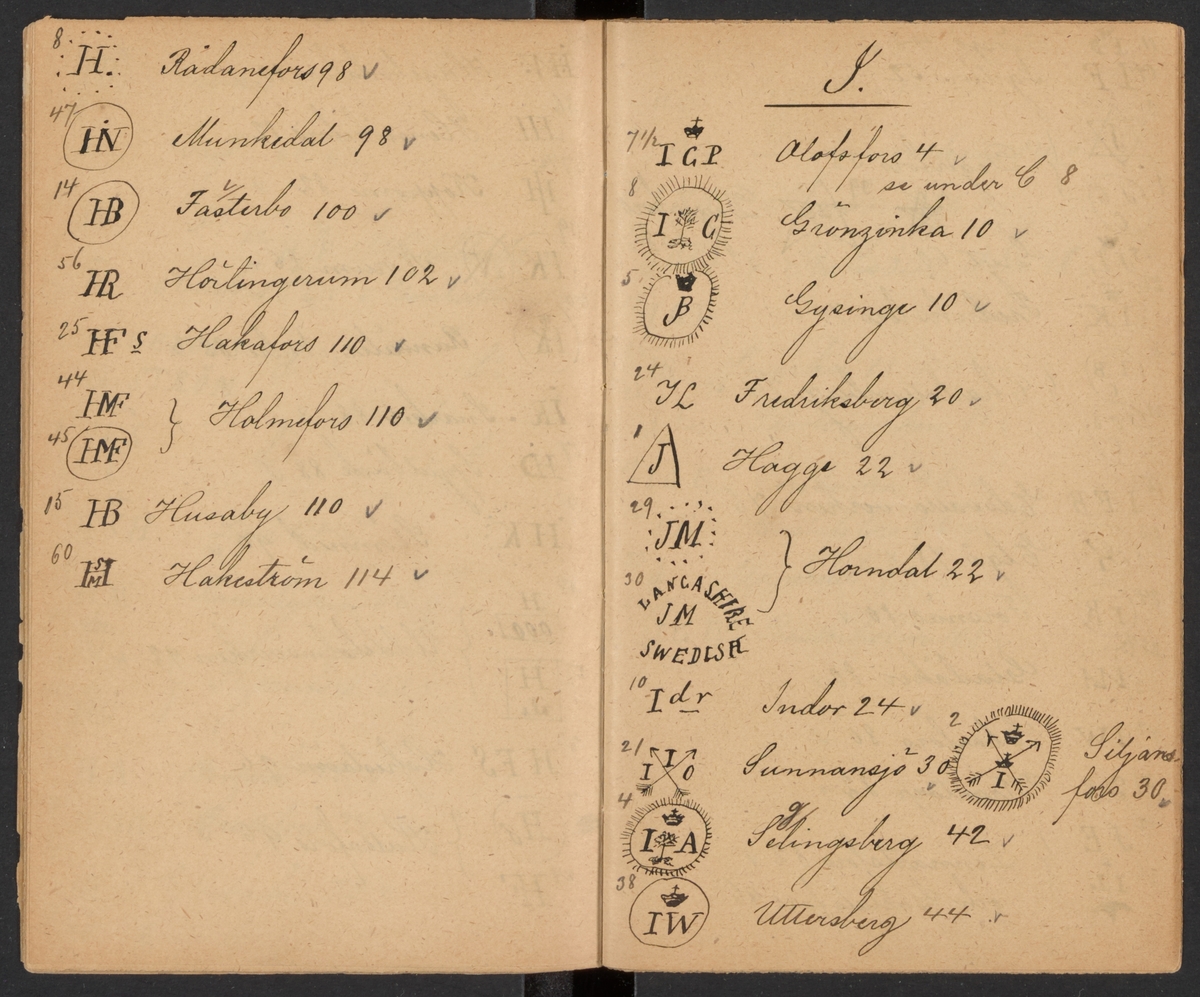 8. H. Rådanefors 98 ✓
47 HN Munkedal 98 ✓
14 HB Fästerbo 100 ✓
56 HR Hörlingerum 102 ✓
25 HF s Hakafors 110 ✓
44 HMF
} Holmefors 110 ✓
45 HMF
15 HB Husaby 110 ✓
60 Hakeström 114 ✓
J.
7 1/2 I G P Olofsfors 4 ✓
se under C 8
8 I G Grönzinka 10 ✓
5 JB Gysinge 10 ✓
24 JL Fredriksberg 20 ✓
1 J Hagge 22 ✓
29 JM
} Horndal 22 ✓
30 LANCASHIRE
JM
SWEDISH
10 Idr Indor 24 ✓
21 I I O Sunnansjö 30 ✓
2 I Siljans-
fors 30 ✓
4 I A Selingsberg 42 ✓
38 IW Uttersberg 44 ✓